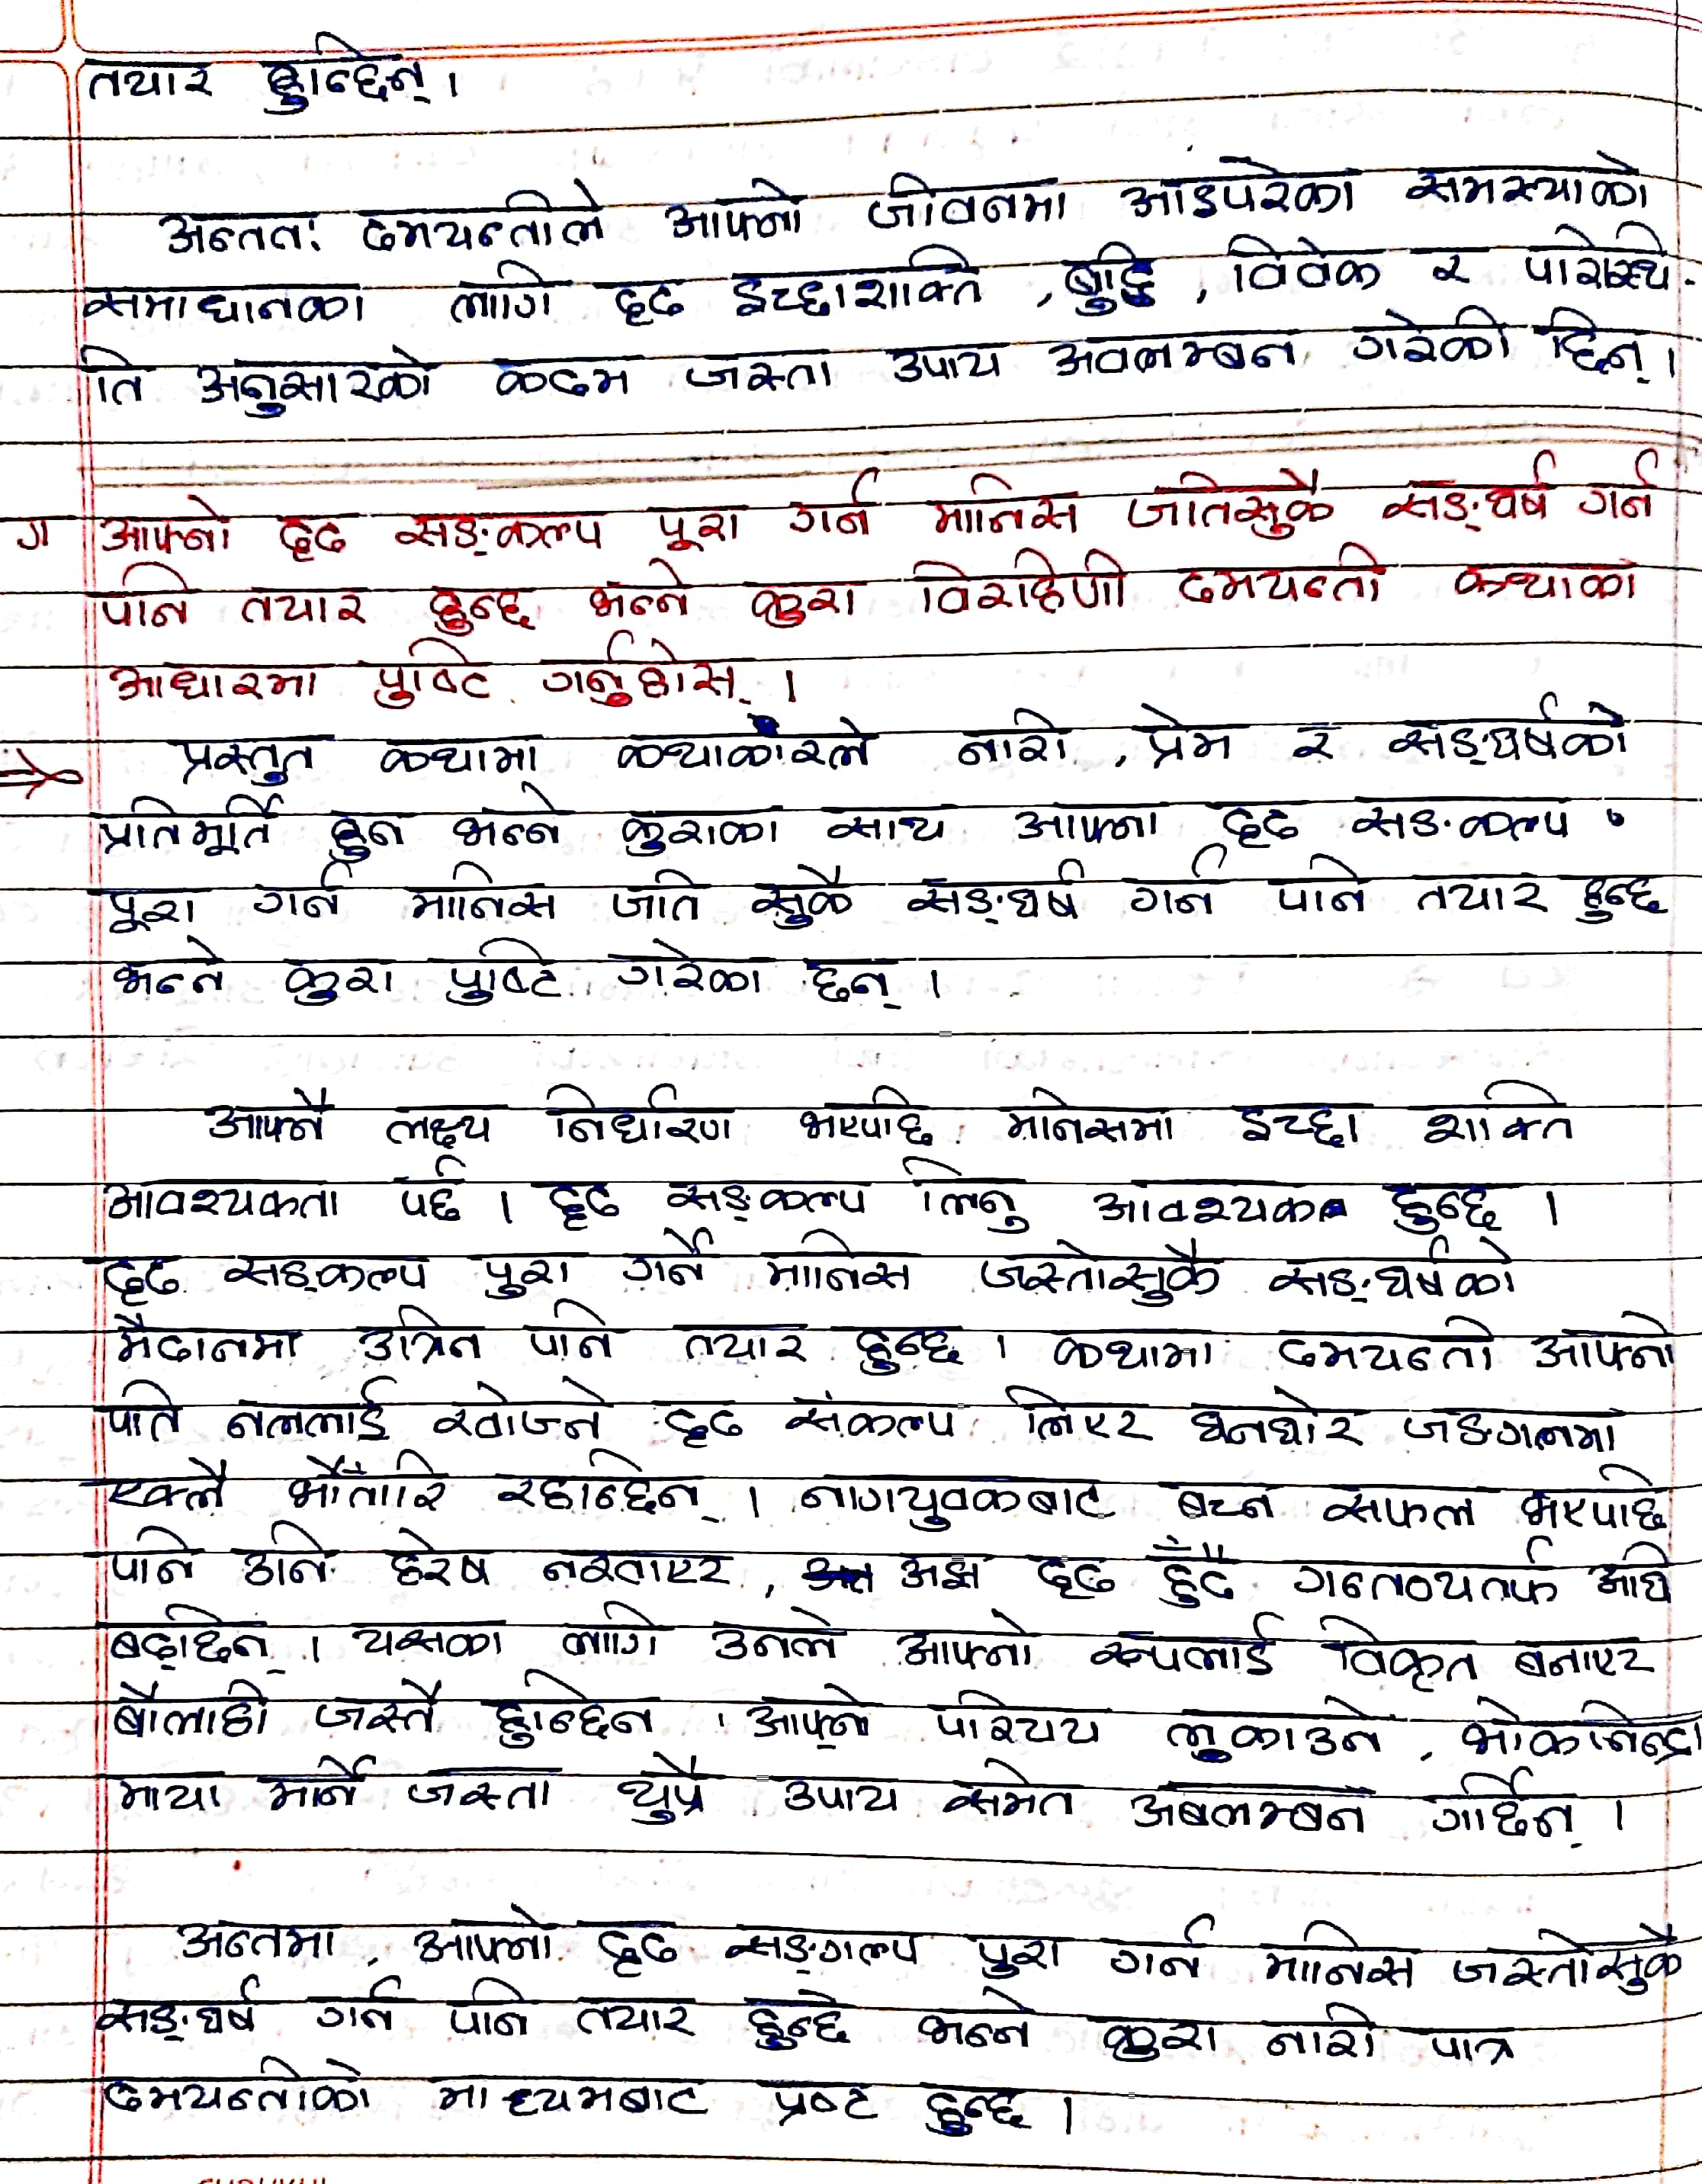 तयार हुन्छिन् ।
अन्ततः दमयन्तीले आफ्नो जीवनमा आइपरेका समस्याको
समाधानका लागि दृढ इच्छाशक्ति , बुद्धि , विवेक र परिस्थि-
ति अनुसारको कदम जस्ता उपाय अवलम्बन गरेकी छिन् ।
ग आफ्नो दृढ सङ्कल्प पूरा गर्न मानिस जतिसुकै सङ्घर्ष गर्न
पनि तयार हुन्छ भन्ने कुरा विरहिणी दमयन्ती कथाका
आधारमा पुष्टि गर्नुहोस् ।
⇒ प्रस्तुत कथामा कथाकारले नारी , प्रेम र सङ्घर्षको
प्रतिमूर्ति हुन भन्ने कुराका साथ आफ्ना दृढ सङकल्प
पूरा गर्न मानिस जति सुकै सङ्घर्ष गर्न पनि तयार हुन्छ
भन्ने कुरा पुष्टि गरेका छन् ।
आफ्नै लक्ष्य निर्धारण भएपछि मानिसमा इच्छा शक्ति
आवश्यकता पर्छ । दृढ सङ्कल्प लिनु आवश्यक हुन्छ ।
दृढ सङ्कल्प पुरा गर्न मानिस जस्तोसुकै सङ्घर्षको
मैदानमा उत्रिन पनि तयार हुन्छ । कथामा दमयन्ती आफ्नो
पति नललाई खोज्ने दृढ संकल्प लिएर घनघोर जङगलमा
एक्लै भौंतारि रहन्छिन् । नागयुवकबाट बच्न सफल भएपछि
पनि उनि हरेष नखाएर , अझ दृढ हुँदै गन्तव्यतर्फ अघि
बढ्छिन् । यसका लागि उनले आफ्नो रूपलाई विकृत बनाएर
बौलाही जस्तै हुन्छिन । आफ्नो परिचय लुकाउने , भोकनिन्द्रा
माया मार्ने जस्ता थुप्रै उपाय समेत अबलम्बन गर्छिन् ।
अन्तमा , आफ्नो दृढ सङ्गल्प पुरा गर्न मानिस जस्तोसुकै
सङ्घर्ष गर्न पनि तयार हुन्छे भन्ने कुरा नारी पात्र
दमयन्तीको माध्यमबाट प्रष्ट हुन्छ ।